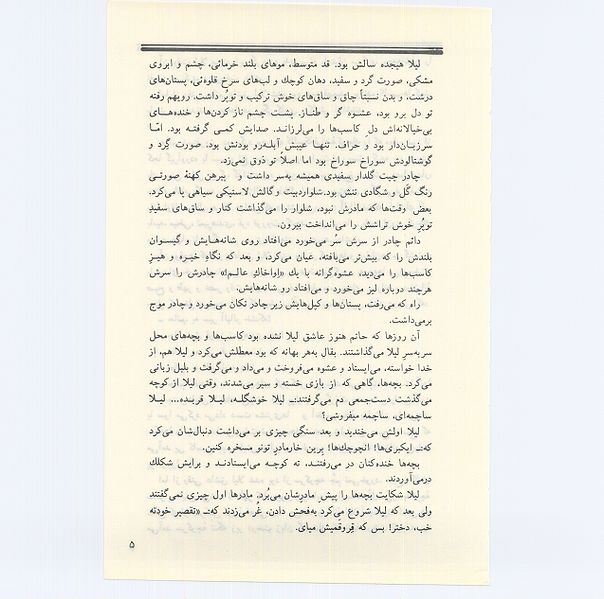 لیلا هیجده سالش بود. قد متوسط، موهای بلند خرمائی، چشم و ابروی
مشکی، صورت گرد و سفید، دهان کوچك و لب‌های سرخ قلوه‌ئی، پستان‌های
درشت، و بدن نسبتاً چاق و ساق‌های خوش ترکیب و توپُر داشت. رویهم رفته
تو دل برو بود، عشوه گر و طناز. پشت چشم ناز کردن‌ها و خنده‌های
بی‌خیالانه‌اش دل کاسب‌ها را می‌لرزاند. صدایش کمی گرفته بود. امّا
سرزبان‌دار بود و حراف. تنها عیبش آبله‌رو بودنش بود. صورت گِرد و
گوشتالودش سوراخ سوراخ بود اما اصلاً تو ذوق نمی‌زد.
چادر چیت گلدار سفیدی همیشه به‌سر داشت و پیرهن کهنهٔ صورتی
رنگ گل و گشادی تنش بود. شلواردبیت و گالش لاستیکی سیاهی پا می‌کرد.
بعض وقت‌ها که مادرش نبود، شلوار را می‌گذاشت کنار و ساق‌های سفیدِ
توپُرِ خوش تراشش را می‌انداخت بیرون.
دائم چادر از سرش سُر می‌خورد می‌افتاد روی شانه‌هایش و گیسوان
بلندش را که بیش‌تر می‌بافته، عیان می‌کرد، و بعد که نگاهِ خیره و هیزِ
کاسب‌ها را می‌دید، عشوه‌گرانه با یك «اواخاكِ عالم!» چادرش را سرش
هرچند دوباره لیز می‌خورد و می‌افتاد رو شانه‌هایش.
راه که می‌رفت، پستان‌ها و کپل‌هایش زیر چادر تکان می‌خورد و چادر موج
برمی‌داشت.
آن روزها که حاتم هنوز عاشق لیلا نشده بود کاسب‌ها و بچه‌های محل
سربه‌سرِ لیلا می‌گذاشتند. بقال به‌هر بهانه که بود معطلش می‌کرد و لیلا هم، از
خدا خواسته، می‌ایستاد و عشوه می‌فروخت و می‌داد و می‌گرفت و بلبل زبانی
می‌کرد. بچه‌ها، گاهی که از بازی خسته و سیر می‌شدند، وقتی لیلا از کوچه
می‌گذشت دست‌جمعی دم می‌گرفتند:ـ لیلا خوشگله، لیلا قربده... لیلا
ساچمه‌ای، ساچمه میفروشی؟
لیلا اولش می‌خندید و بعد سنگی چیزی بر می‌داشت دنبال‌شان می‌کرد
که:ـ ایکبری‌ها! انچوچك‌ها! برین خارمادرِ تونو مسخره کنین.
بچه‌ها خنده‌کنان در می‌رفتند، ته کوچه می‌ایستادند و برایش شکلك
درمی‌آوردند.
لیلا شکایت بچه‌ها را پیش مادرشان می‌بُرد. مادرها اول چیزی نمی‌گفتند
ولی بعد که لیلا شروع می‌کرد به‌فحش دادن، غُر می‌زدند که:ـ «تقصیر خودته
خب، دختر! بس که قِروقَمیش میای.
۵